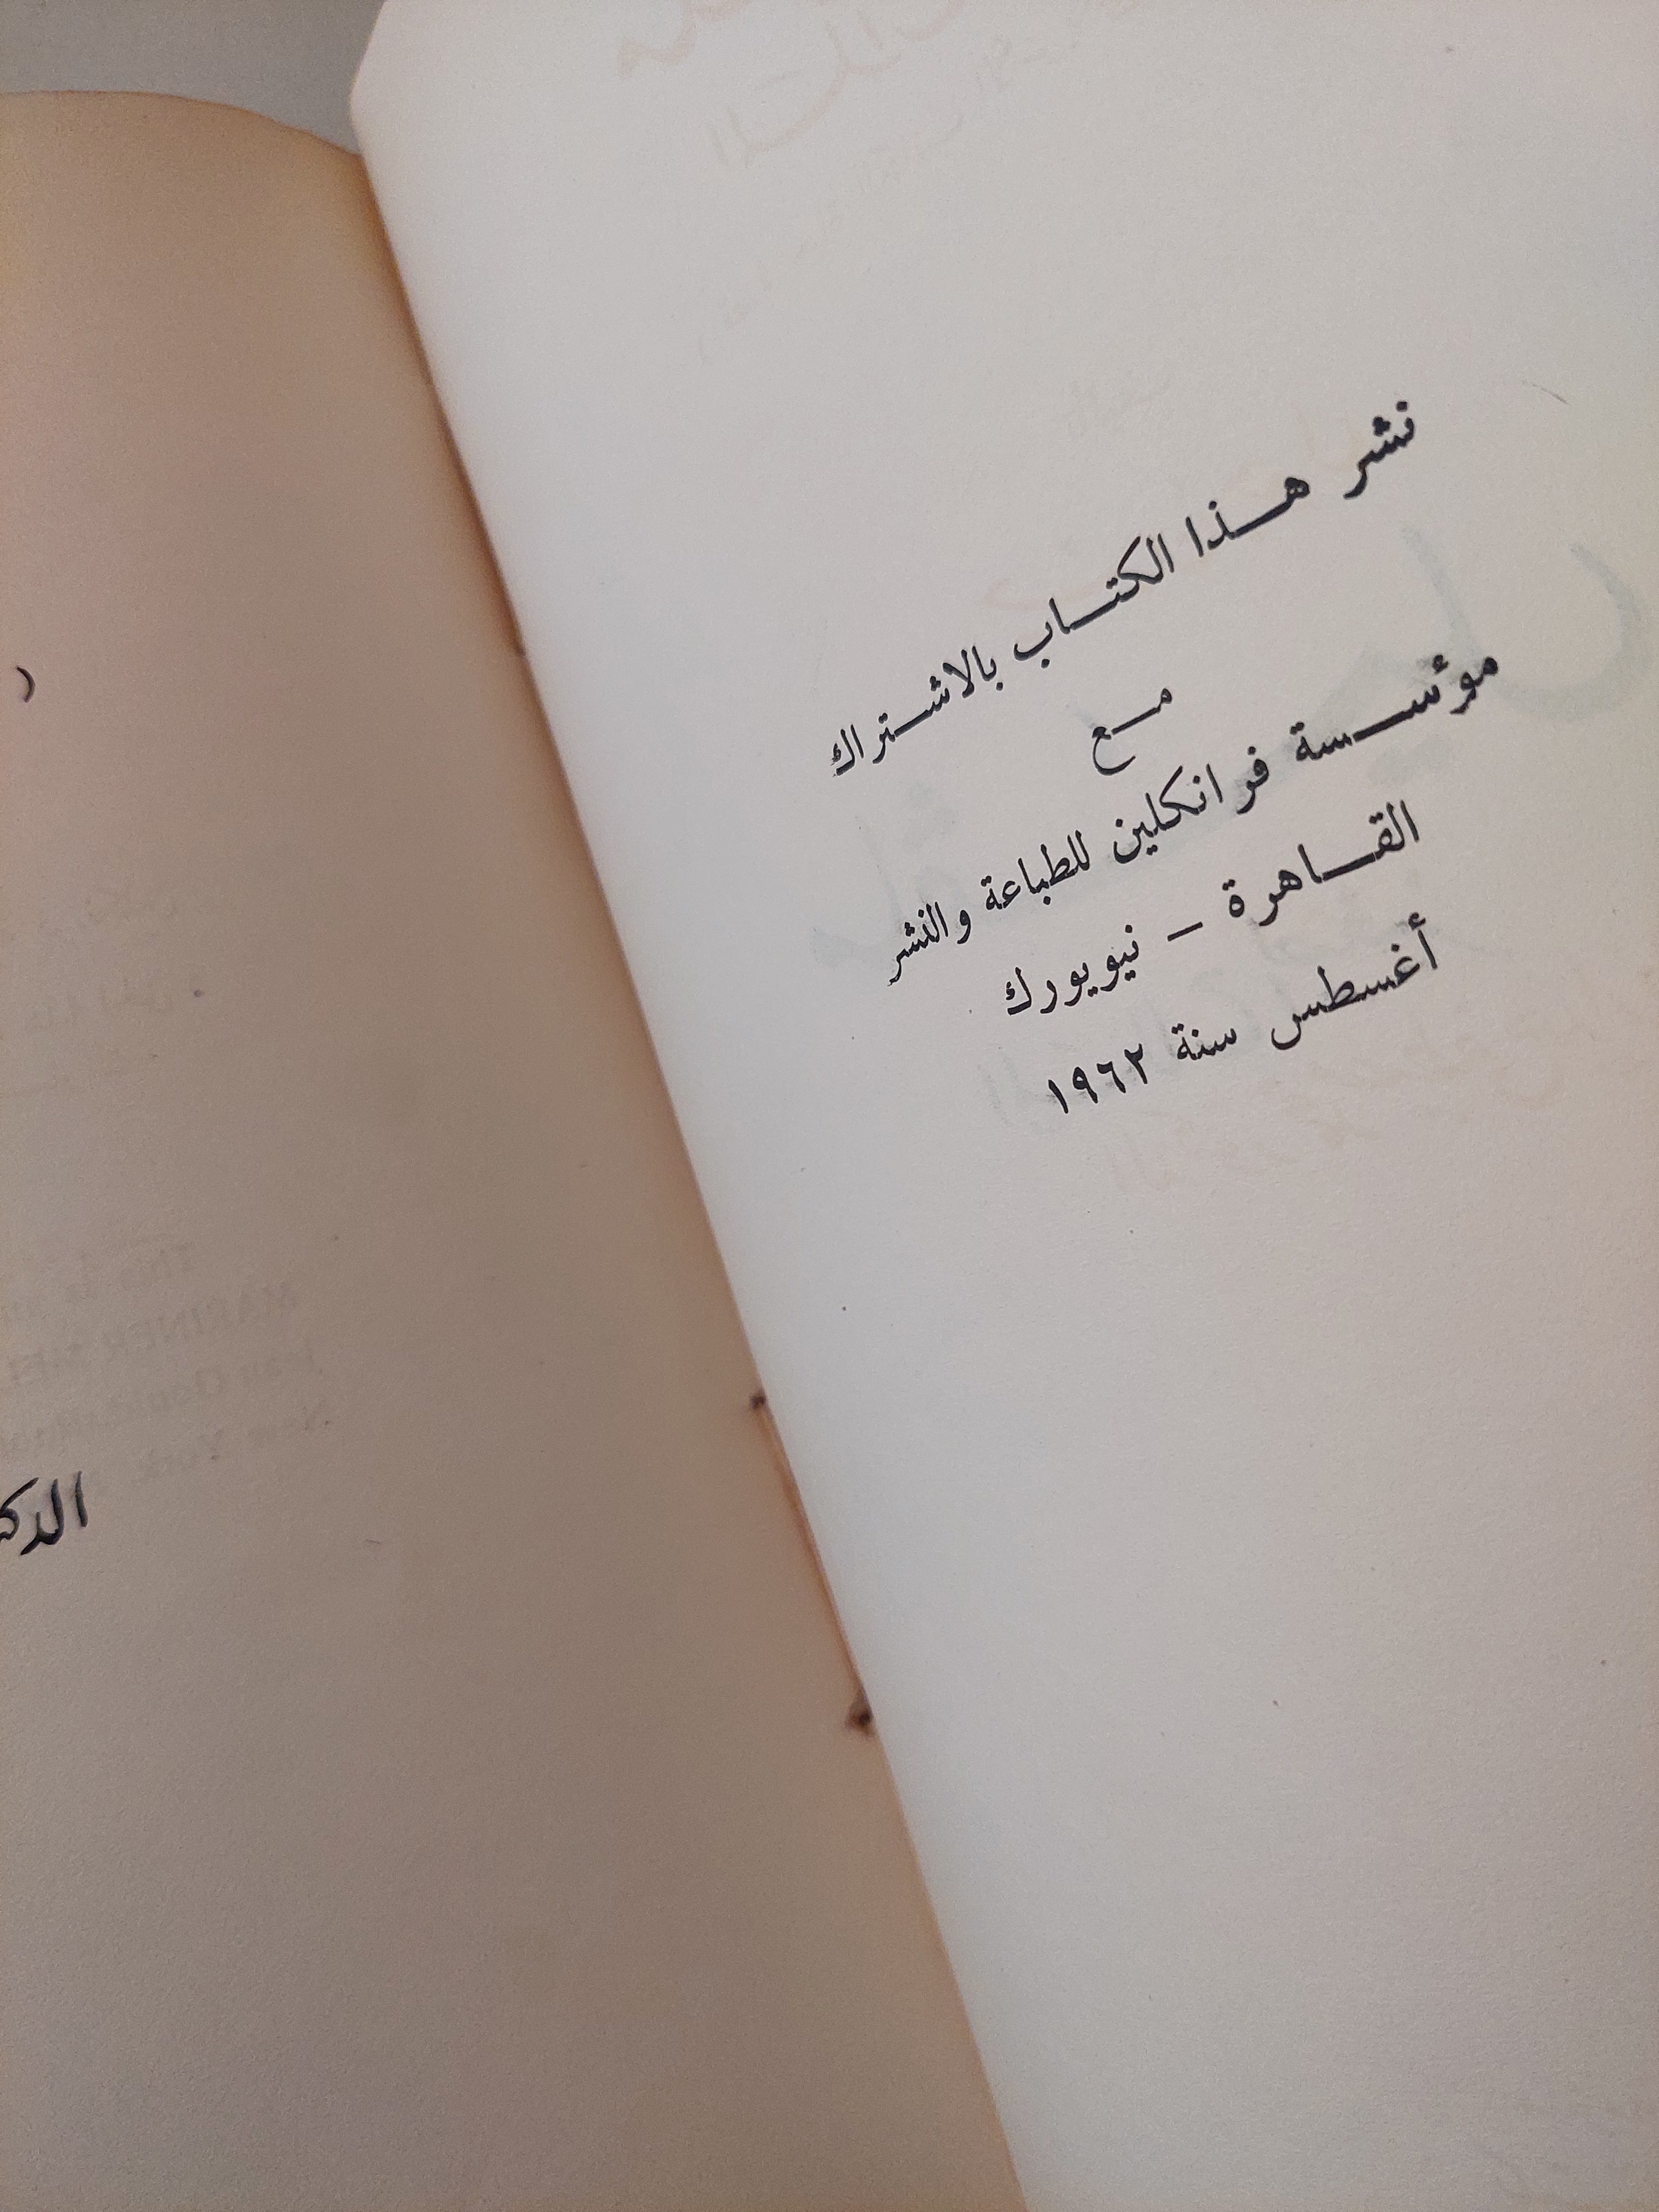 نشر هـذا الكتـاب بالاشـتراك
مـع
مؤسـسة فرانكلين للطباعة والنشر
القـاهرة – نيويورك
أغسطس سنة ١٩٦٢